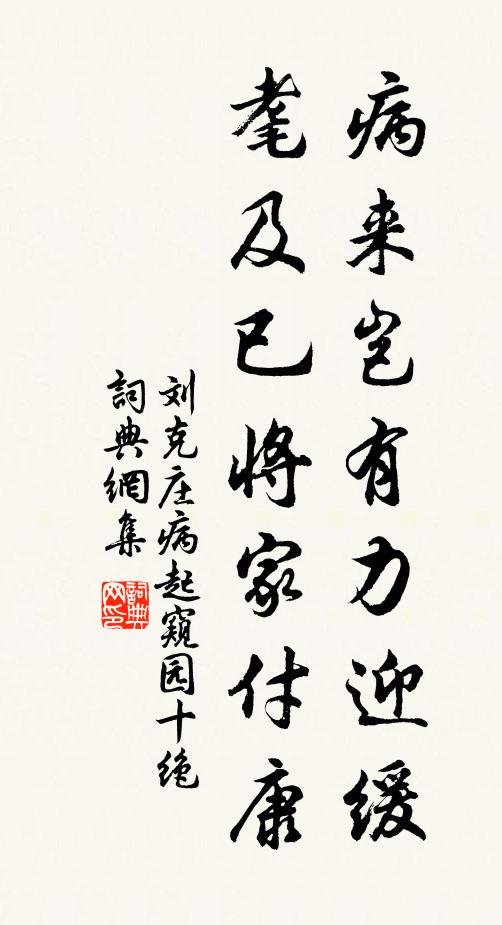 病来岂有力迎缓
耄及已将家付康
刘克庄病起窥园十绝
詞典網集
詞典网印